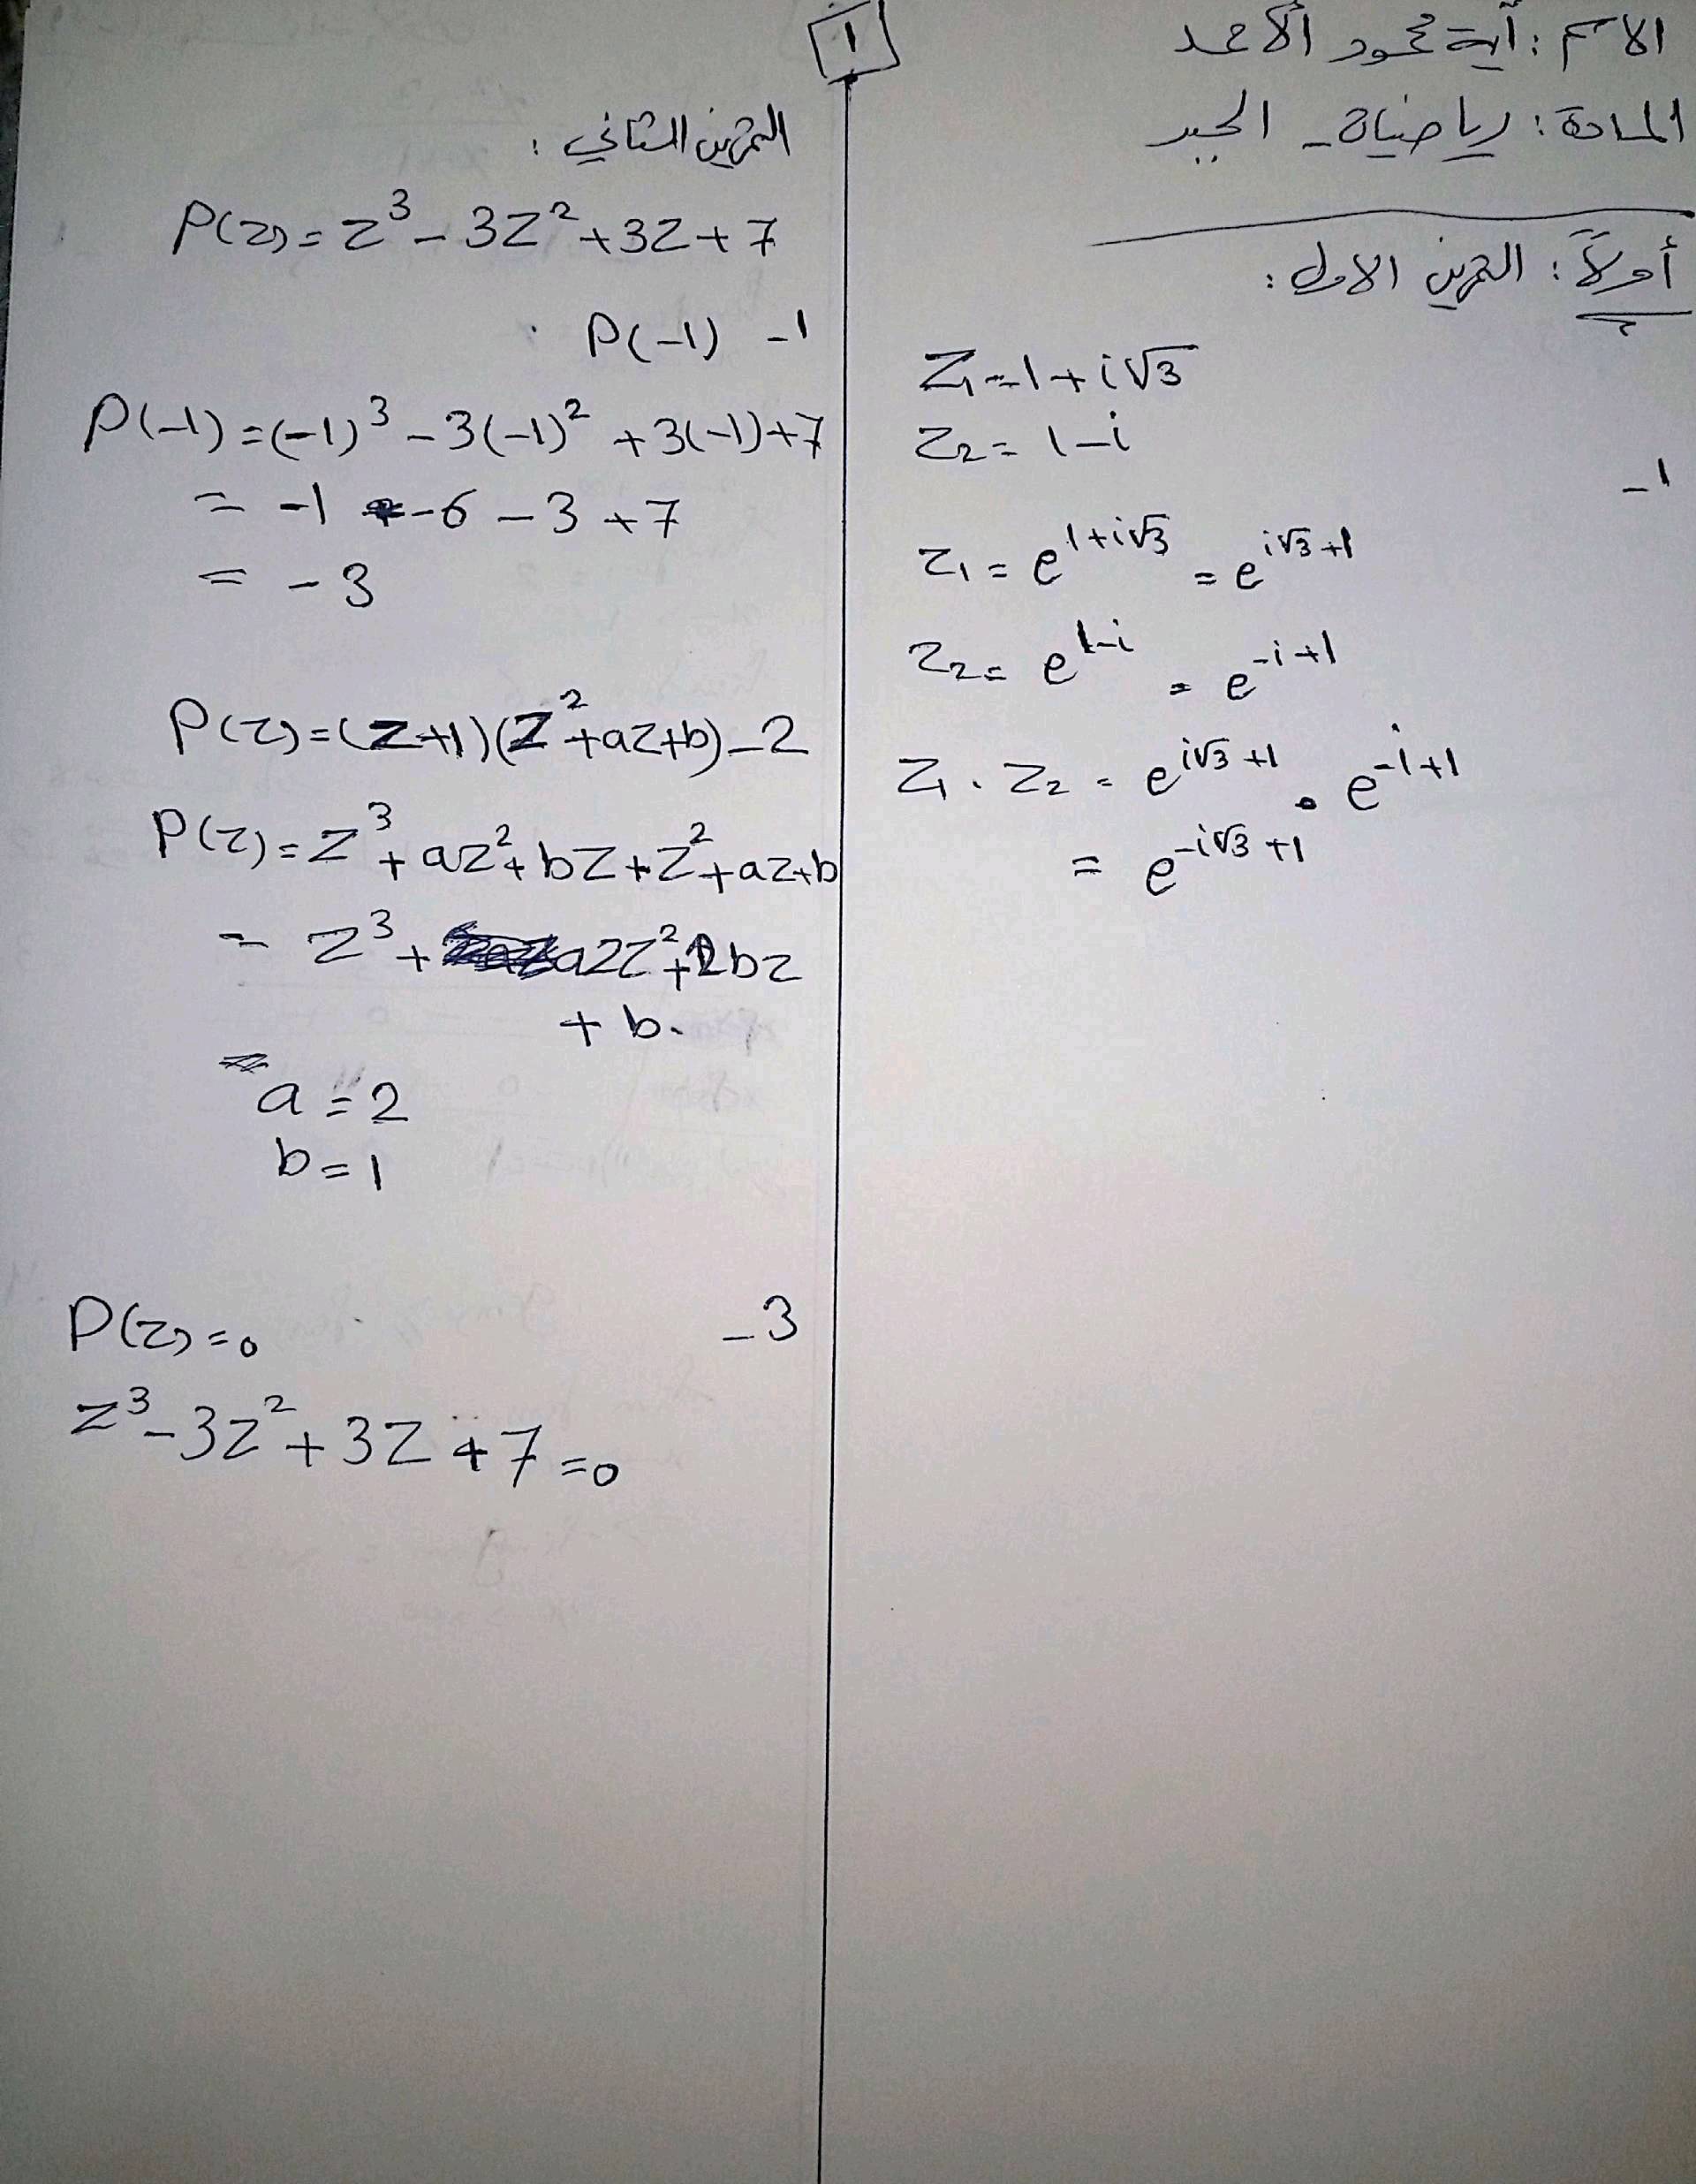 1
الاسم : آية محمود الأحمد
المادة : رياضيات - الجبر
أولاً : التمرين الاول :
Z₁ = 1 + i√3
Z₂ = 1 - i
1 -
Z₁ = e^{1+i√3} = e^{i√3+1}
Z₂ = e^{1-i} = e^{-i+1}
Z₁ . Z₂ = e^{i√3+1} . e^{-i+1}
= e^{-i√3+1}
التمرين الثاني :
P(z) = z³ - 3z² + 3z + 7
1 - P(-1)
P(-1) = (-1)³ - 3(-1)² + 3(-1) + 7
= -1 - 6 - 3 + 7
= - 3
2 - P(z) = (z+1)(z² + az + b)
P(z) = z³ + az² + bz + z² + az + b
= z³ + a2z² + 2bz
+ b.
a = 2
b = 1
3 - P(z) = 0
z³ - 3z² + 3z + 7 = 0